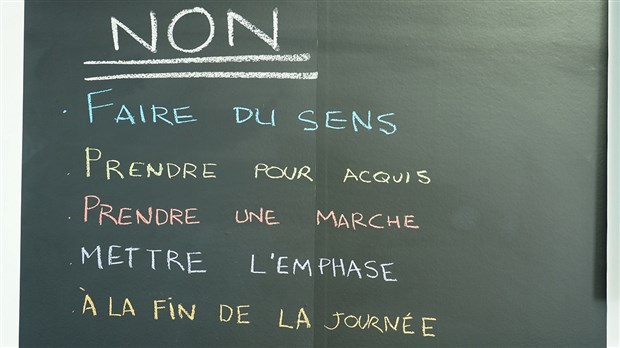 NON
· FAIRE DU SENS
· PRENDRE POUR ACQUIS
· PRENDRE UNE MARCHE
· METTRE L'EMPHASE
· À LA FIN DE LA JOURNÉE